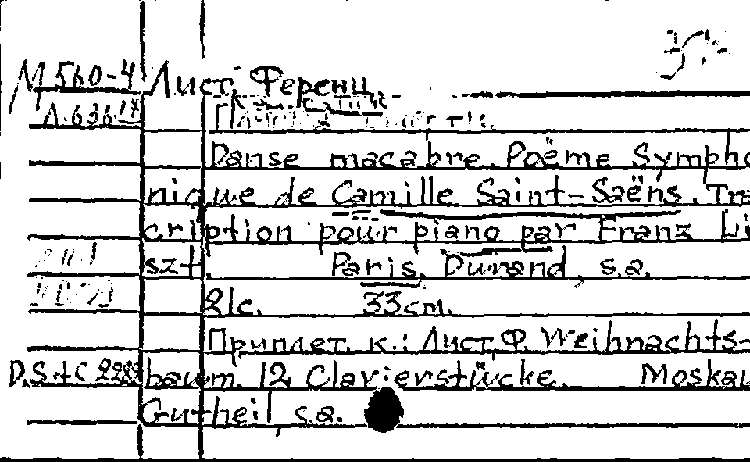 М 560-4 Лист, Ференц.
Л.636
Danse macabre. Poëme Sympho
nique de Camille Saint-Saëns. Tra
cription pour piano par Franz Li
szt. Paris, Durand, s.a.
21c. 33cm.
Приплет. к.: Лист, Ф. Weihnachts-
D.S.+C baum. 12 Clavierstücke. Moskau
Gutheil, s.a.